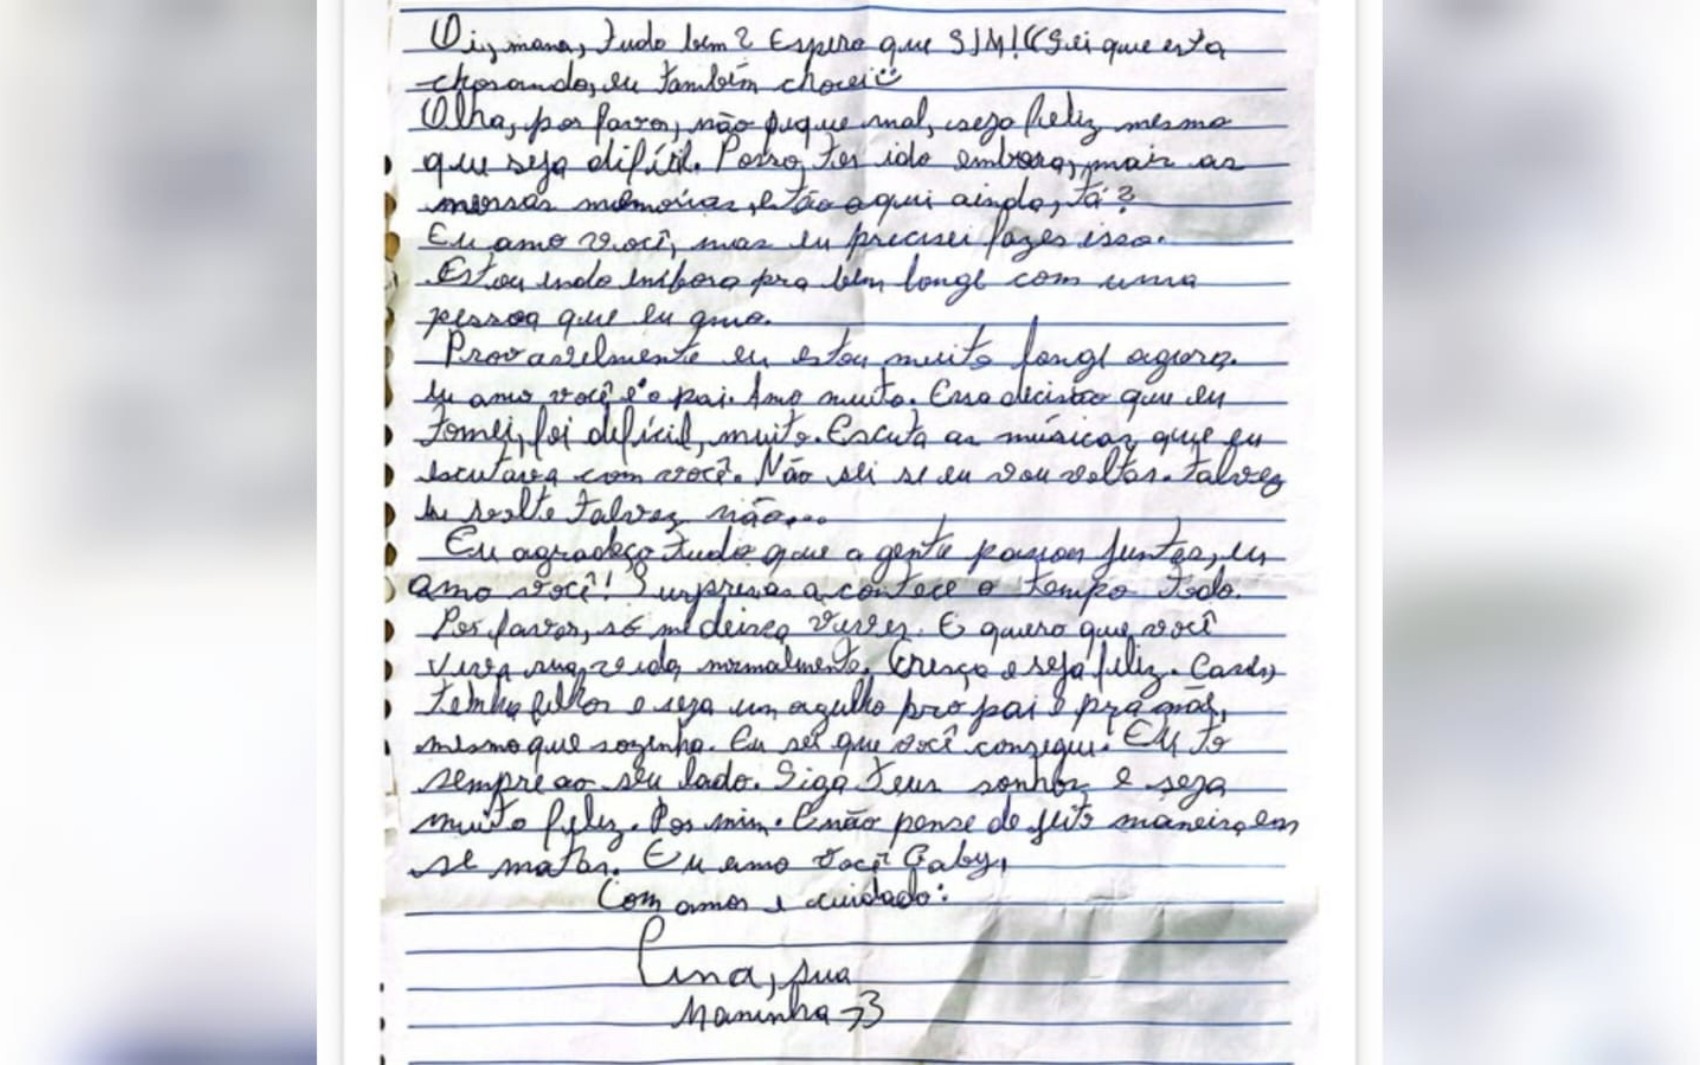 Oi, mana, tudo bem? Espero que SIM! (Sei que esta
chorando, eu também chorei
Olha, por favor, não fique mal, seja feliz mesmo
que seja difícil. Posso ter ido embora, mais as
nossas memórias, estão aqui ainda, tá?
Eu amo você, mas eu precisei fazer isso.
Estou indo embora pra bem longe com uma
pessoa que eu amo.
Provavelmente eu estou muito longe agora.
eu amo você e o pai. Amo muito. Essa decisão que eu
tomei, foi defícil, muito. Escuta as músicas que eu
escutava com você. Não sei se eu vou voltar. talvez
eu volte talvez não...
Eu agradeço tudo que a gente passou juntas, eu
amo você! Surpresas acontece o tempo todo.
Por favor, só me deixa viver. E quero que você
viva sua vida normalmente. Cresça e seja feliz. Case,
tenha filhos e seja um orgulho pro pai e pra mãe,
mesmo que sozinha. Eu sei que você consegue. Eu to
sempre ao seu lado. Siga teus sonhos e seja
muito feliz. Por mim. E não pense de jeito maneira em
se matar. Eu amo você Gaby,
Com amor e cuidado:
sua
Maninha